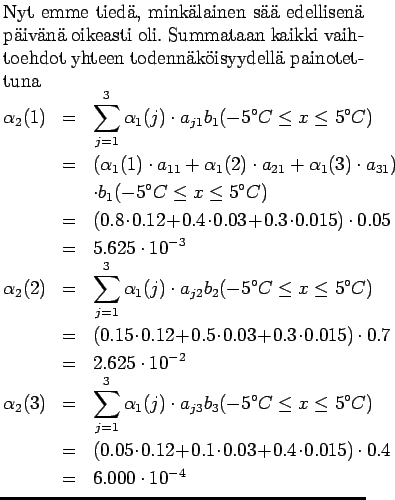 Nyt emme tiedä, minkälainen sää edellisenä
päivänä oikeasti oli. Summataan kaikki vaih-
toehdot yhteen todennäköisyydellä painotet-
tuna
α₂(1) = ∑_{j=1}^{3} α₁(j) · a_{j1}b₁(−5°C ≤ x ≤ 5°C)
= (α₁(1) · a₁₁ + α₁(2) · a₂₁ + α₁(3) · a₃₁)
·b₁(−5°C ≤ x ≤ 5°C)
= (0.8·0.12+0.4·0.03+0.3·0.015) · 0.05
= 5.625 · 10⁻³
α₂(2) = ∑_{j=1}^{3} α₁(j) · a_{j2}b₂(−5°C ≤ x ≤ 5°C)
= (0.15·0.12+0.5·0.03+0.3·0.015) · 0.7
= 2.625 · 10⁻²
α₂(3) = ∑_{j=1}^{3} α₁(j) · a_{j3}b₃(−5°C ≤ x ≤ 5°C)
= (0.05·0.12+0.1·0.03+0.4·0.015) · 0.4
= 6.000 · 10⁻⁴